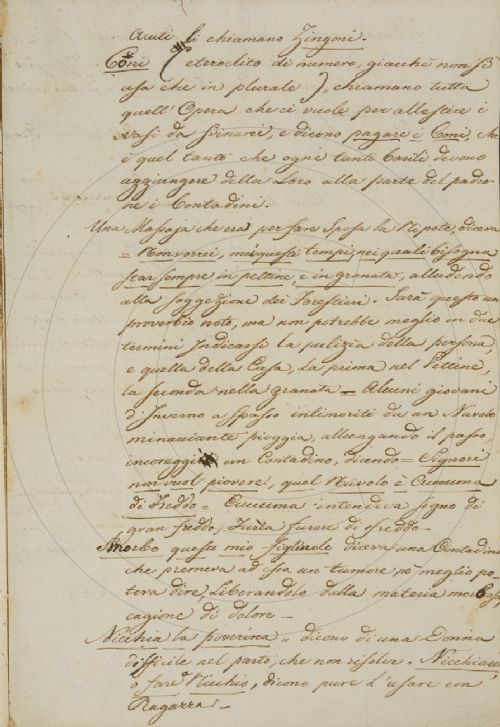 Acuti si chiamano Zingoni.
Coni ( eteroclito di numero, giacchè non si
usa che in plurale ), chiamano tutta
quell' Opera che ci vuole per allestire i
vasi da , e dicono pagare i Coni, che
è quel tanto che ogni tanti barili devono
aggiungere della Loro alla parte del padro-
ne i Contadini.
Una Massaja che era per fare Sposa la Nipote, diceva
= Non vorrei, in questi tempi, nei quali bisogna
star sempre in pettine, e in granata, alludendo
alla soggezione dei Forestieri. Sarà questo un
proverbio noto, ma non potrebbe meglio in due
termini Indicarsi la pulizia della persona,
e quella della Casa, La prima nel Pettine,
la seconda nella Granata = Alcuni giovani
d'Inverno a spasso intimoriti da un Nuvolo
minacciante pioggia, allungando il passo,
incoraggì un Contadino, dicendo = Signori
non vuol piovere, quel Nuvolo è Cucuma
di Freddo = Cucuma intendeva segno di
gran freddo, furore di freddo
Smorbo questo mio figliolo diceva una Contadina
che premeva ad esso un tumore, nè meglio po-
teva dire, Liberandolo dalla materia
cagione di dolore =
Nicchia la poverina = dicono di una Donna
difficile nel parto, che non risolve. Nicchiare
o fare Nicchio, dicono pure l'usare con
Ragazza. =